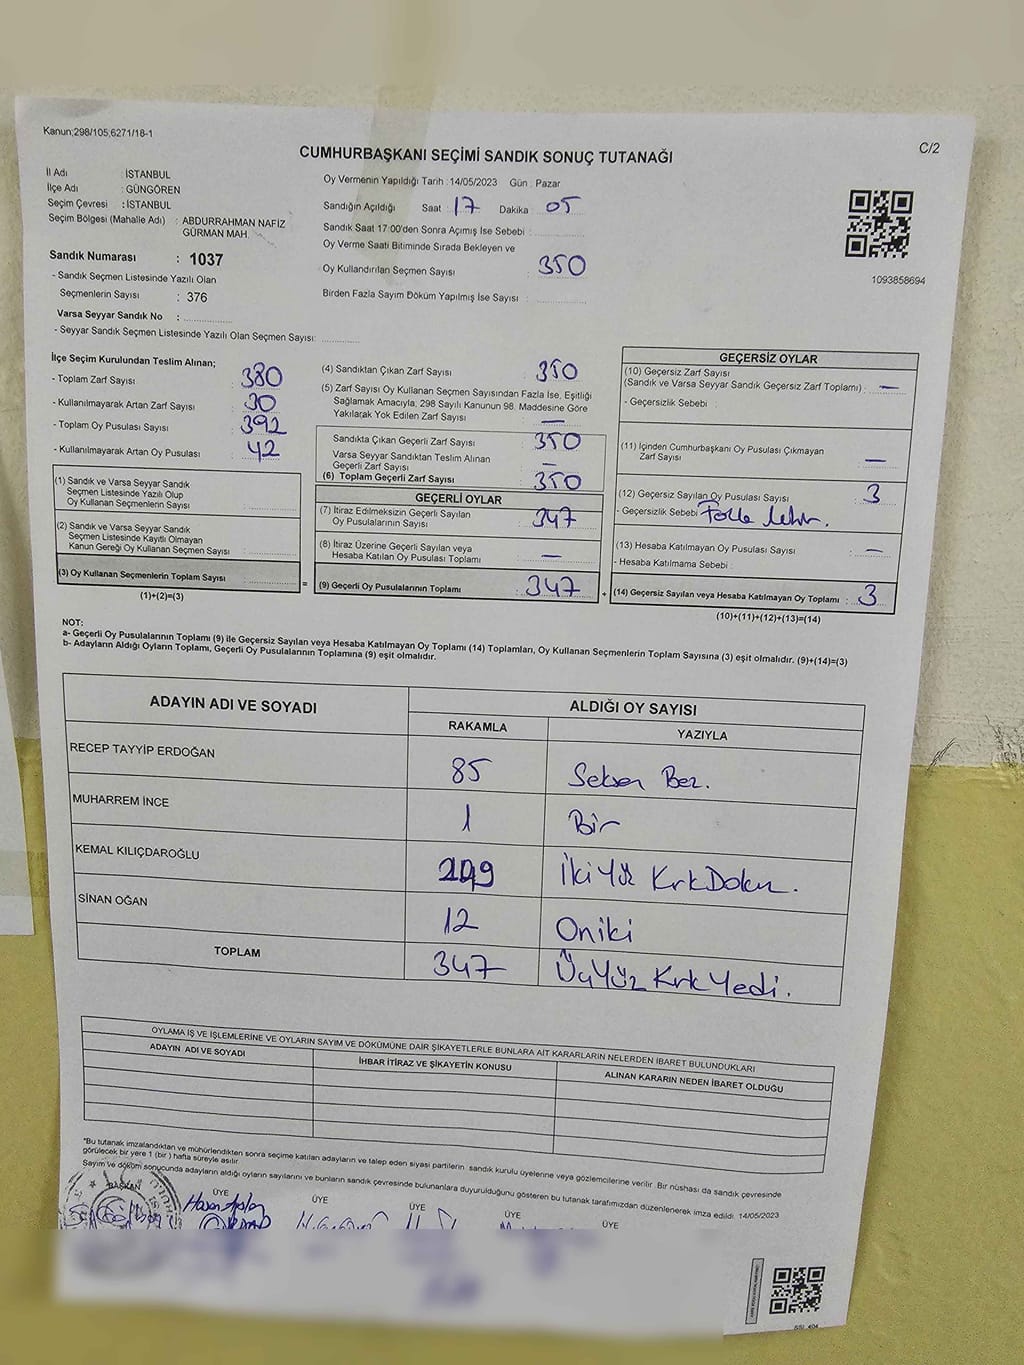 Kanun;298/105,6271/18-1
C/2
CUMHURBAŞKANI SEÇİMİ SANDIK SONUÇ TUTANAĞI
İl Adı : İSTANBUL
İlçe Adı : GÜNGÖREN
Seçim Çevresi : İSTANBUL
Seçim Bölgesi (Mahalle Adı) : ABDURRAHMAN NAFİZ
GÜRMAN MAH.
Sandık Numarası : 1037
- Sandık Seçmen Listesinde Yazılı Olan
Seçmenlerin Sayısı : 376
Varsa Seyyar Sandık No :
- Seyyar Sandık Seçmen Listesinde Yazılı Olan Seçmen Sayısı:
Oy Vermenin Yapıldığı Tarih : 14/05/2023 Gün : Pazar
Sandığın Açıldığı Saat 17 Dakika 05
Sandık Saat 17:00'den Sonra Açımış İse Sebebi :
Oy Verme Saati Bitiminde Sırada Bekleyen ve
Oy Kullandırılan Seçmen Sayısı 350
Birden Fazla Sayım Döküm Yapılmış İse Sayısı :
1093858694
İlçe Seçim Kurulundan Teslim Alınan;
- Toplam Zarf Sayısı : 380
- Kullanılmayarak Artan Zarf Sayısı : 30
- Toplam Oy Pusulası Sayısı : 392
- Kullanılmayarak Artan Oy Pusulası : 42
(1) Sandık ve Varsa Seyyar Sandık
Seçmen Listesinde Yazılı Olup
Oy Kullanan Seçmenlerin Sayısı :
(2) Sandık ve Varsa Seyyar Sandık
Seçmen Listesinde Kayıtlı Olmayan
Kanun Gereği Oy Kullanan Seçmen Sayısı :
(3) Oy Kullanan Seçmenlerin Toplam Sayısı :
=
(1)+(2)=(3)
(4) Sandıktan Çıkan Zarf Sayısı : 350
(5) Zarf Sayısı Oy Kullanan Seçmen Sayısından Fazla İse, Eşitliği
Sağlamak Amacıyla, 298 Sayılı Kanunun 98. Maddesine Göre
Yakılarak Yok Edilen Zarf Sayısı : —
Sandıkta Çıkan Geçerli Zarf Sayısı : 350
Varsa Seyyar Sandıktan Teslim Alınan
Geçerli Zarf Sayısı : —
(6) Toplam Geçerli Zarf Sayısı : 350
GEÇERLİ OYLAR
(7) İtiraz Edilmeksizin Geçerli Sayılan
Oy Pusulalarının Sayısı : 347
(8) İtiraz Üzerine Geçerli Sayılan veya
Hesaba Katılan Oy Pusulası Toplamı : —
(9) Geçerli Oy Pusulalarının Toplamı : 347
+
GEÇERSİZ OYLAR
(10) Geçersiz Zarf Sayısı
(Sandık ve Varsa Seyyar Sandık Geçersiz Zarf Toplamı) : —
- Geçersizlik Sebebi :
(11) İçinden Cumhurbaşkanı Oy Pusulası Çıkmayan
Zarf Sayısı : —
(12) Geçersiz Sayılan Oy Pusulası Sayısı : 3
- Geçersizlik Sebebi
(13) Hesaba Katılmayan Oy Pusulası Sayısı : —
- Hesaba Katılmama Sebebi :
(14) Geçersiz Sayılan veya Hesaba Katılmayan Oy Toplamı : 3
(10)+(11)+(12)+(13)=(14)
NOT:
a- Geçerli Oy Pusulalarının Toplamı (9) ile Geçersiz Sayılan veya Hesaba Katılmayan Oy Toplamı (14) Toplamları, Oy Kullanan Seçmenlerin Toplam Sayısına (3) eşit olmalıdır. (9)+(14)=(3)
b- Adayların Aldığı Oyların Toplamı, Geçerli Oy Pusulalarının Toplamına (9) eşit olmalıdır.
ADAYIN ADI VE SOYADI
ALDIĞI OY SAYISI
RAKAMLA YAZIYLA
RECEP TAYYİP ERDOĞAN 85 Seksen Beş.
MUHARREM İNCE 1 Bir
KEMAL KILIÇDAROĞLU 249 İkiYüz KırkDokuz.
SİNAN OĞAN 12 Oniki
TOPLAM 347 ÜçYüz KırkYedi.
OYLAMA İŞ VE İŞLEMLERİNE VE OYLARIN SAYIM VE DÖKÜMÜNE DAİR ŞİKAYETLERLE BUNLARA AİT KARARLARIN NELERDEN İBARET BULUNDUKLARI
ADAYIN ADI VE SOYADI
İHBAR İTİRAZ VE ŞİKAYETİN KONUSU
ALINAN KARARIN NEDEN İBARET OLDUĞU
*Bu tutanak imzalandıktan ve mühürlendikten sonra seçime katılan adayların ve talep eden siyasi partilerin sandık kurulu üyelerine veya gözlemcilerine verilir. Bir nüshası da sandık çevresinde
görülecek bir yere 1 (bir) hafta süreyle asılır.
Sayım ve döküm sonucunda adayların aldığı oyların sayılarını ve bunların sandık çevresinde bulunanlara duyurulduğunu gösteren bu tutanak tarafımızdan düzenlenerek imza edildi. 14/05/2023
BAŞKAN ÜYE ÜYE ÜYE ÜYE ÜYE